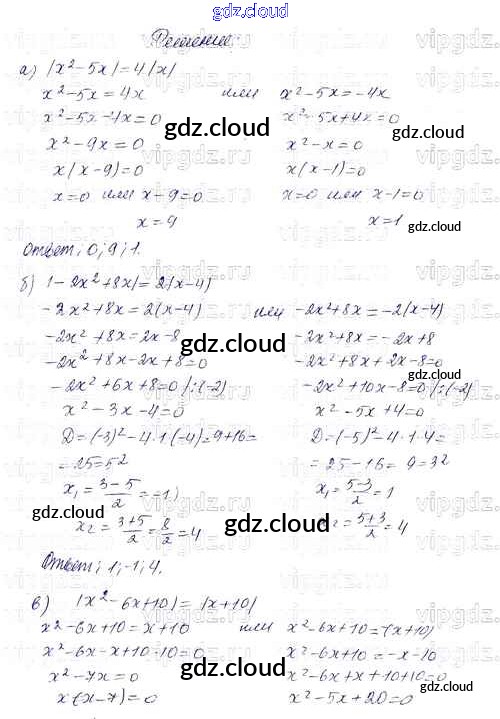 gdz.cloud
Решение.
а) |x²-5x|=4|x|
x²-5x=4x или x²-5x=-4x
x²-5x-4x=0 x²-5x+4x=0
x²-9x=0 x²-x=0
x(x-9)=0 x(x-1)=0
x=0 или x-9=0 x=0 или x-1=0
x=9 x=1
Ответ: 0; 9; 1.
б) |-2x²+8x|=2|x-4|
-2x²+8x=2(x-4) или -2x²+8x=-2(x-4)
-2x²+8x=2x-8 -2x²+8x=-2x+8
-2x²+8x-2x+8=0 -2x²+8x+2x-8=0
-2x²+6x+8=0 /:(-2) -2x²+10x-8=0 /:(-2)
x²-3x-4=0 x²-5x+4=0
D=(-3)²-4·1·(-4)=9+16= D=(-5)²-4·1·4=
=25=5² =25-16=9=3²
x₁=(3-5)/2=-1; x₁=(5-3)/2=1
x₂=(3+5)/2=8/2=4 x₂=(5+3)/2=4
Ответ: 1; -1; 4.
в) |x²-6x+10|=|x+10|
x²-6x+10=x+10 или x²-6x+10=-(x+10)
x²-6x-x+10-10=0 x²-6x+10=-x-10
x²-7x=0 x²-6x+x+10+10=0
x(x-7)=0 x²-5x+20=0